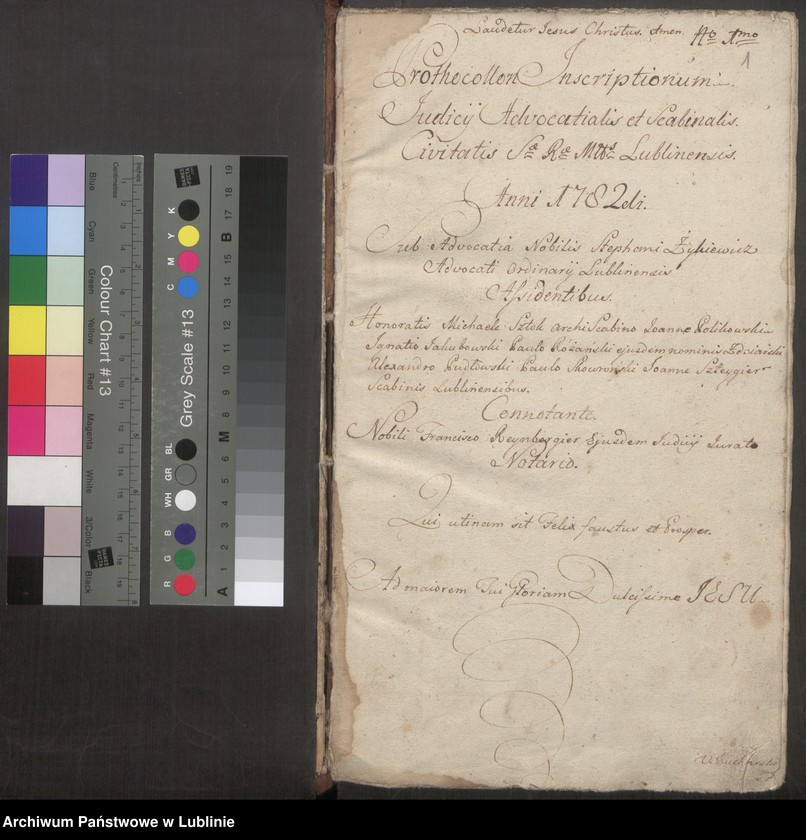 Laudetur Jesus Christus. Amen. Ao 1mo
1
Prothocollon Inscriptionum.
Judicij Advocatialis et Scabinalis.
Civitatis Sae Rae Mttis Lublinensis.
Anni 1782di.
Sub Advocatia Nobilis Stephani Żykiewicz
Advocati Ordinarij Lublinensis
Assidentibus.
Honoratis Michaele Sztok Archi Scabino Joanne
Ignatio Jakubowski Paulo Różański ejusdem nominis
Alexandro Pudłowski Paulo Skowroński Joanne Szteygier
Scabinis Lublinensibus.
Connotante.
Nobili Francisco Reynbergier Ejusdem Judicij Jurato
Notario.
Qui utinam sit Felix faustus et Prosper.
Ad maiorem Tui Gloriam Dulcissime JESU
Colour Chart #13
Blue
Cyan
Green
Yellow
Red
Magenta
White
3/Color
Black
Centimetres
Inches
Grey Scale #13
R G B WH GR BL C M Y K
A 1 2 3 4 5 6 M 8 9 10 11 12 13 14 15 B 17 18 19
Archiwum Państwowe w Lublinie